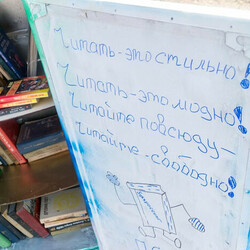 Читать-это стильно!
Читать-это модно!
Читайте повсюду-
Читайте-свободно!